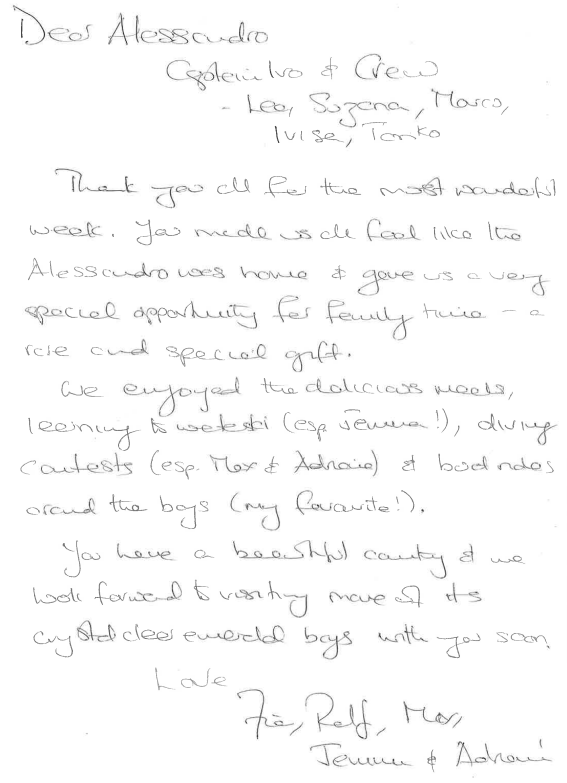 Dear Alessandro
Captain Ivo & Crew
- Leo, Suzana, Marco,
Ivise, Tonko
Thank you all for the most wonderful
week. You made us all feel like the
Alessandro was home & gave us a very
special opportunity for family time - a
rare and special gift.
We enjoyed the delicious meals,
learning to waterski (esp Jemma!), diving
contests (esp. Max & Adrani) & boat rides
around the bays (my favourite!).
You have a beautiful country & we
look forward to visiting more of its
crystal clear emerald bays with you soon.
Love
Ralf, Max,
Jemma & Adrani